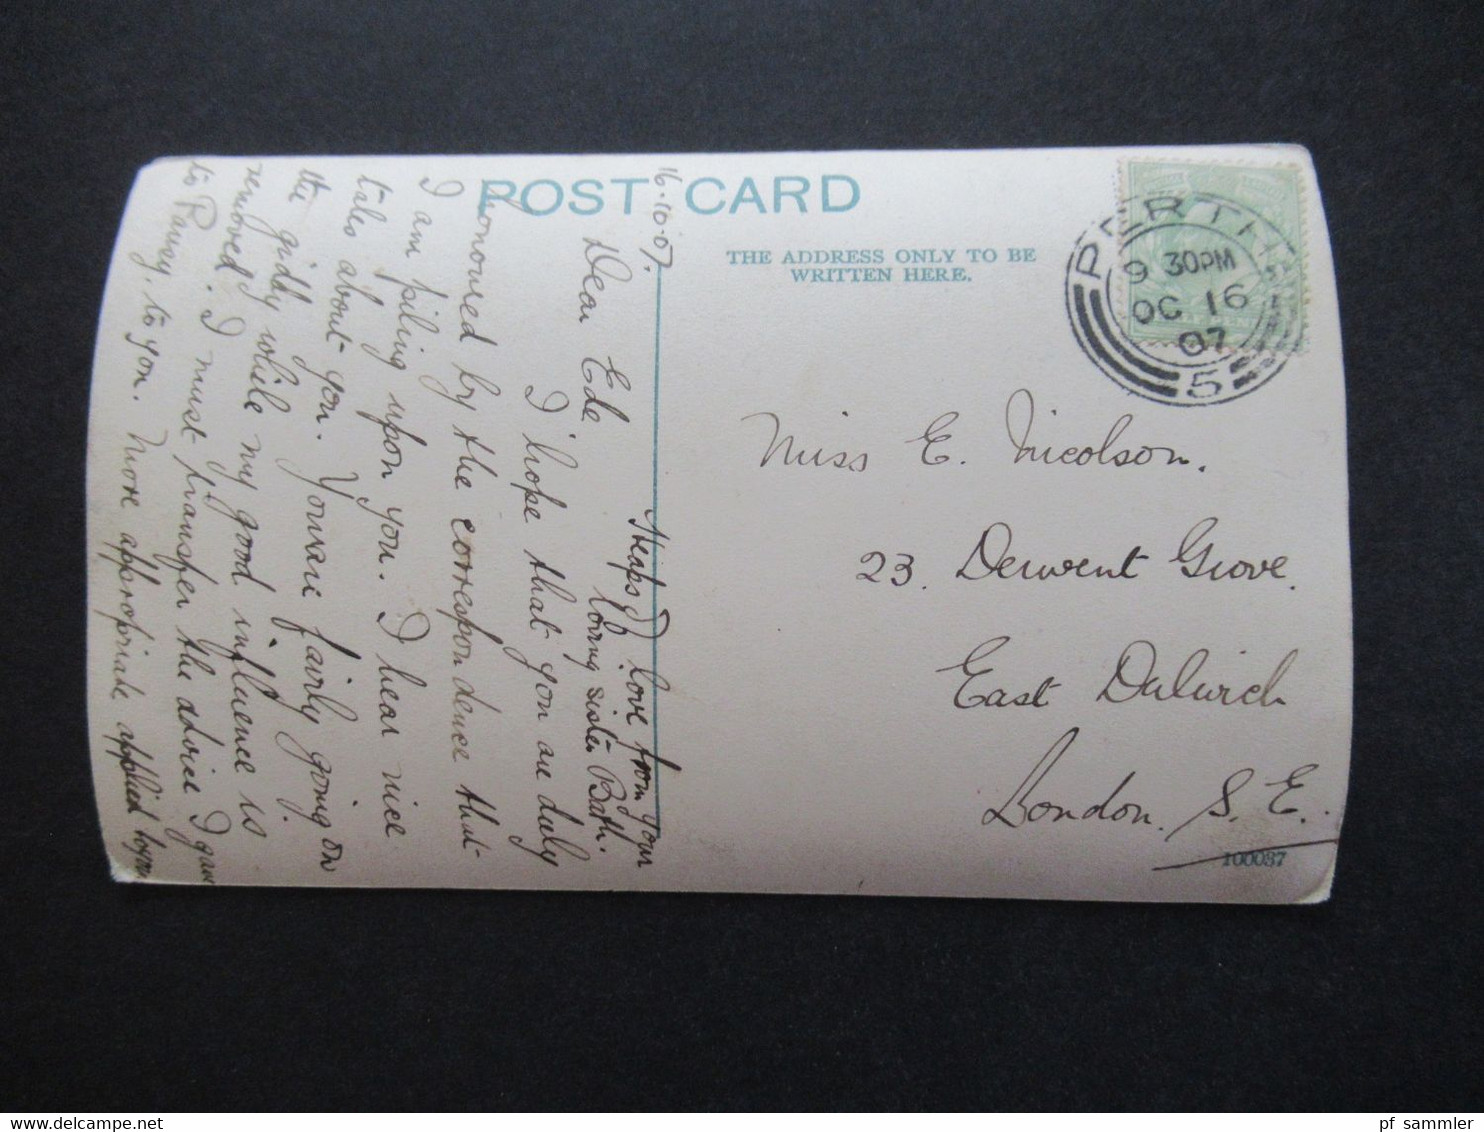 POST CARD
THE ADDRESS ONLY TO BE
WRITTEN HERE.
PERTH
9 30PM
OC 16
07
5
Miss E. Nicolson.
23. Derwent Grove.
East Dulwich
London. S. E.
100037
16.10.07.
Dear Ede
I hope that you are duly
honoured by the correspondence that
I am piling upon you. I hear nice
tales about you. You are fairly going on
the giddy while my good influence is
removed. I must transfer the advice I gave
to Pansy, to you. More appropriate applied
Heaps of love from your
loving sister Bath.
www.delcampe.net
pf_sammler